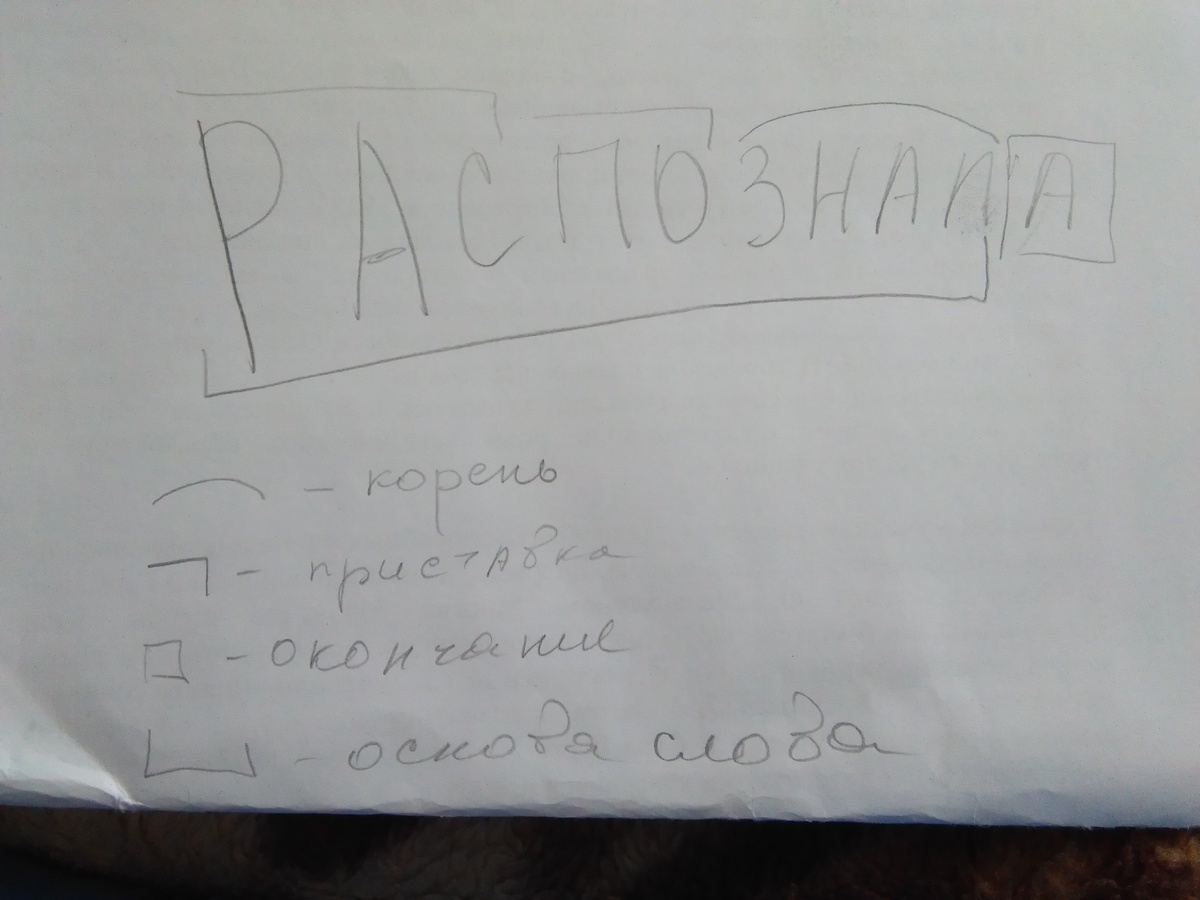 РАСПОЗНАЛА
- корень
- приставка
- окончание
- основа слова